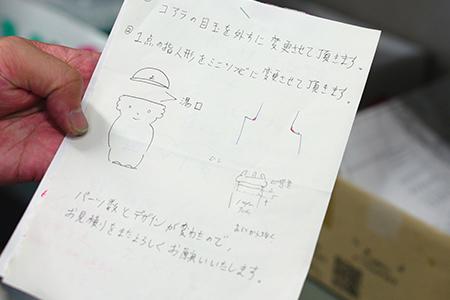 コアラの目玉を外ちに変更させて頂きます。
1点の指人形をミニソフビに変更させて頂きます。
湯口
パーツ数とデザインが変わたので、
お見積りをまたよろしくお願いいたします。